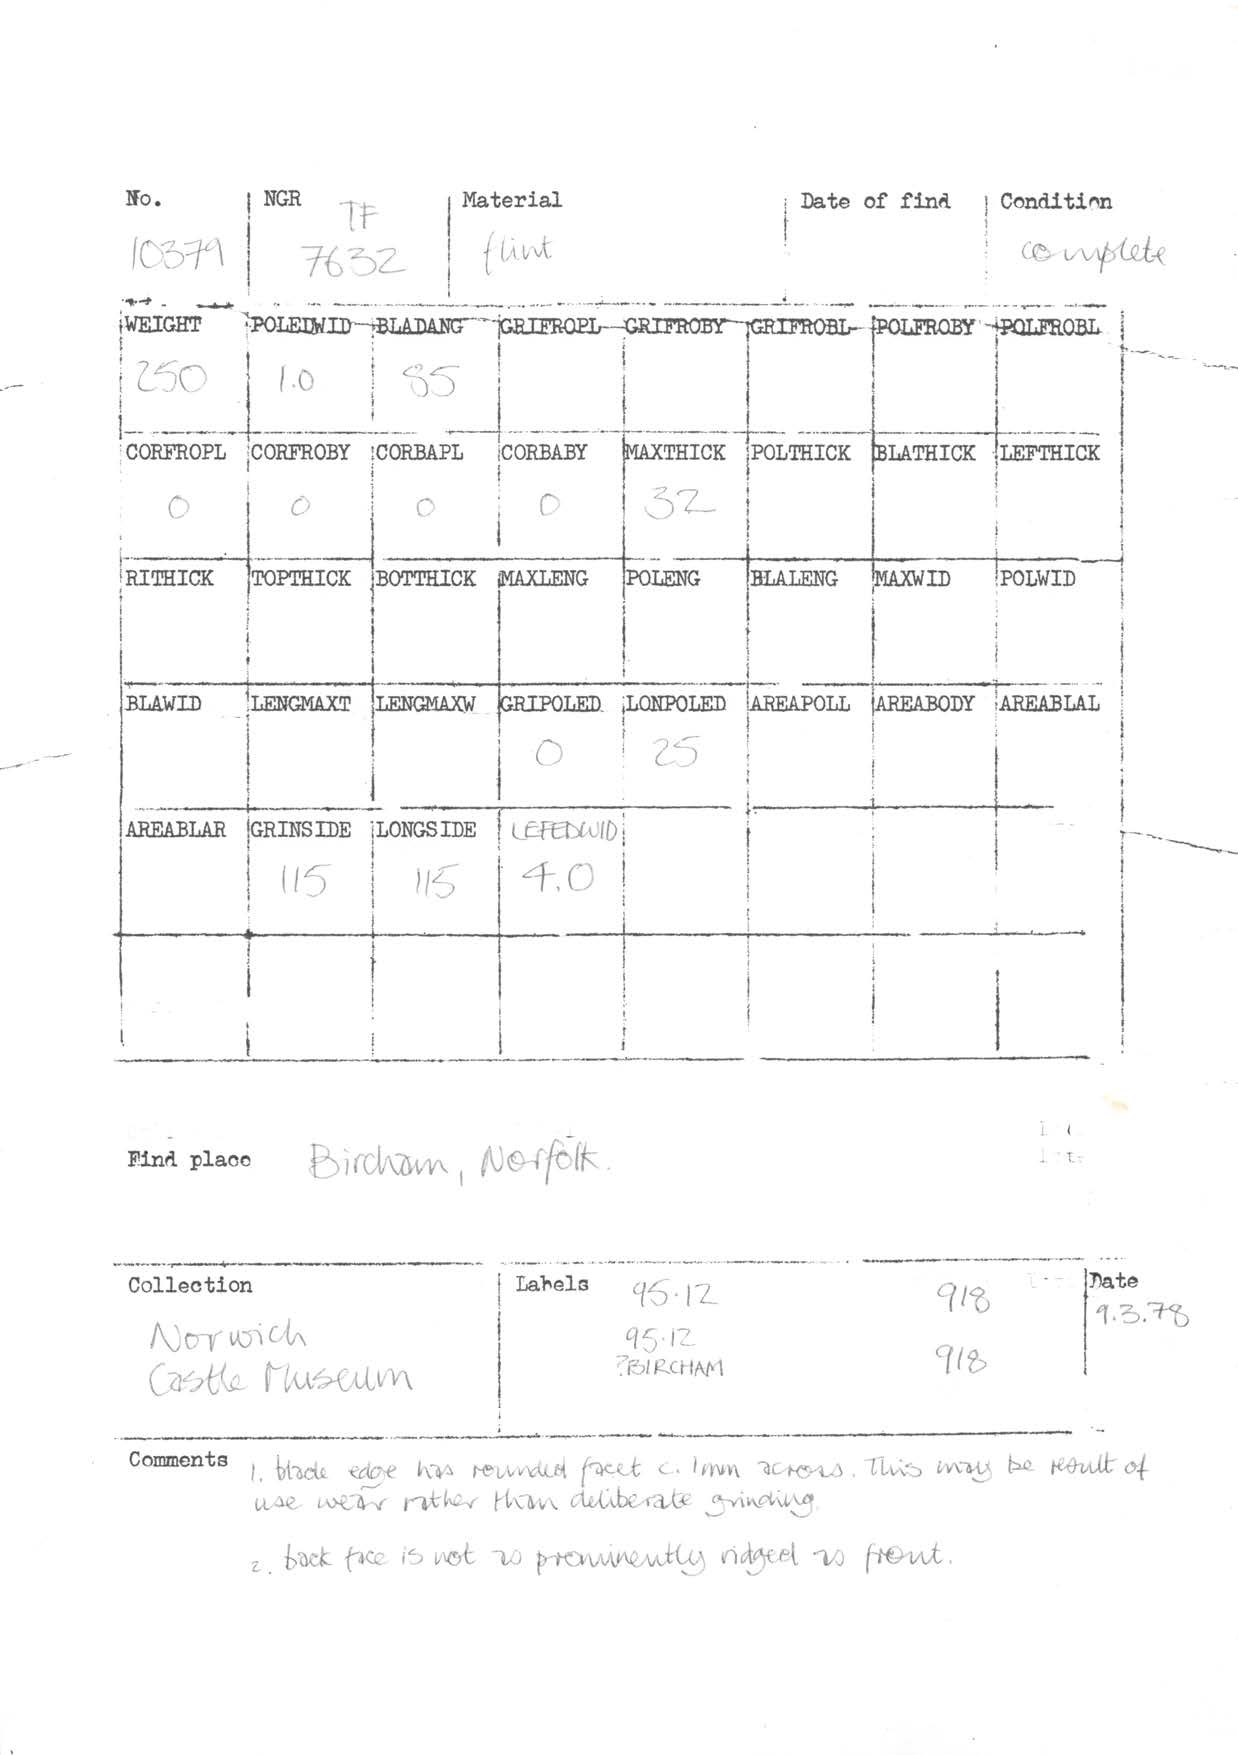 No. NGR Material Date of find Condition
TF
10379 7632 flint complete
WEIGHT POLEDWID BLADANG GRIFROPL GRIFROBY GRIFROBL POLFROBY POLFROBL
250 1.0 85
CORFROPL CORFROBY CORBAPL CORBABY MAXTHICK POLTHICK BLATHICK LEFTHICK
0 0 0 0 32
RITHICK TOPTHICK BOTTHICK MAXLENG POLENG BLALENG MAXWID POLWID
BLAWID LENGMAXT LENGMAXW GRIPOLED LONPOLED AREAPOLL AREABODY AREABLAL
0 25
AREABLAR GRINSIDE LONGSIDE LEFEDWID
115 115 4.0
Find place Bircham, Norfolk.
Collection Labels 95.12 918 Date
9.3.78
Norwich 95.12
Castle Museum ?BIRCHAM 918
Comments 1. blade edge has rounded facet c. 1mm across. This may be result of
use wear rather than deliberate grinding.
2. back face is not as prominently ridged as front.